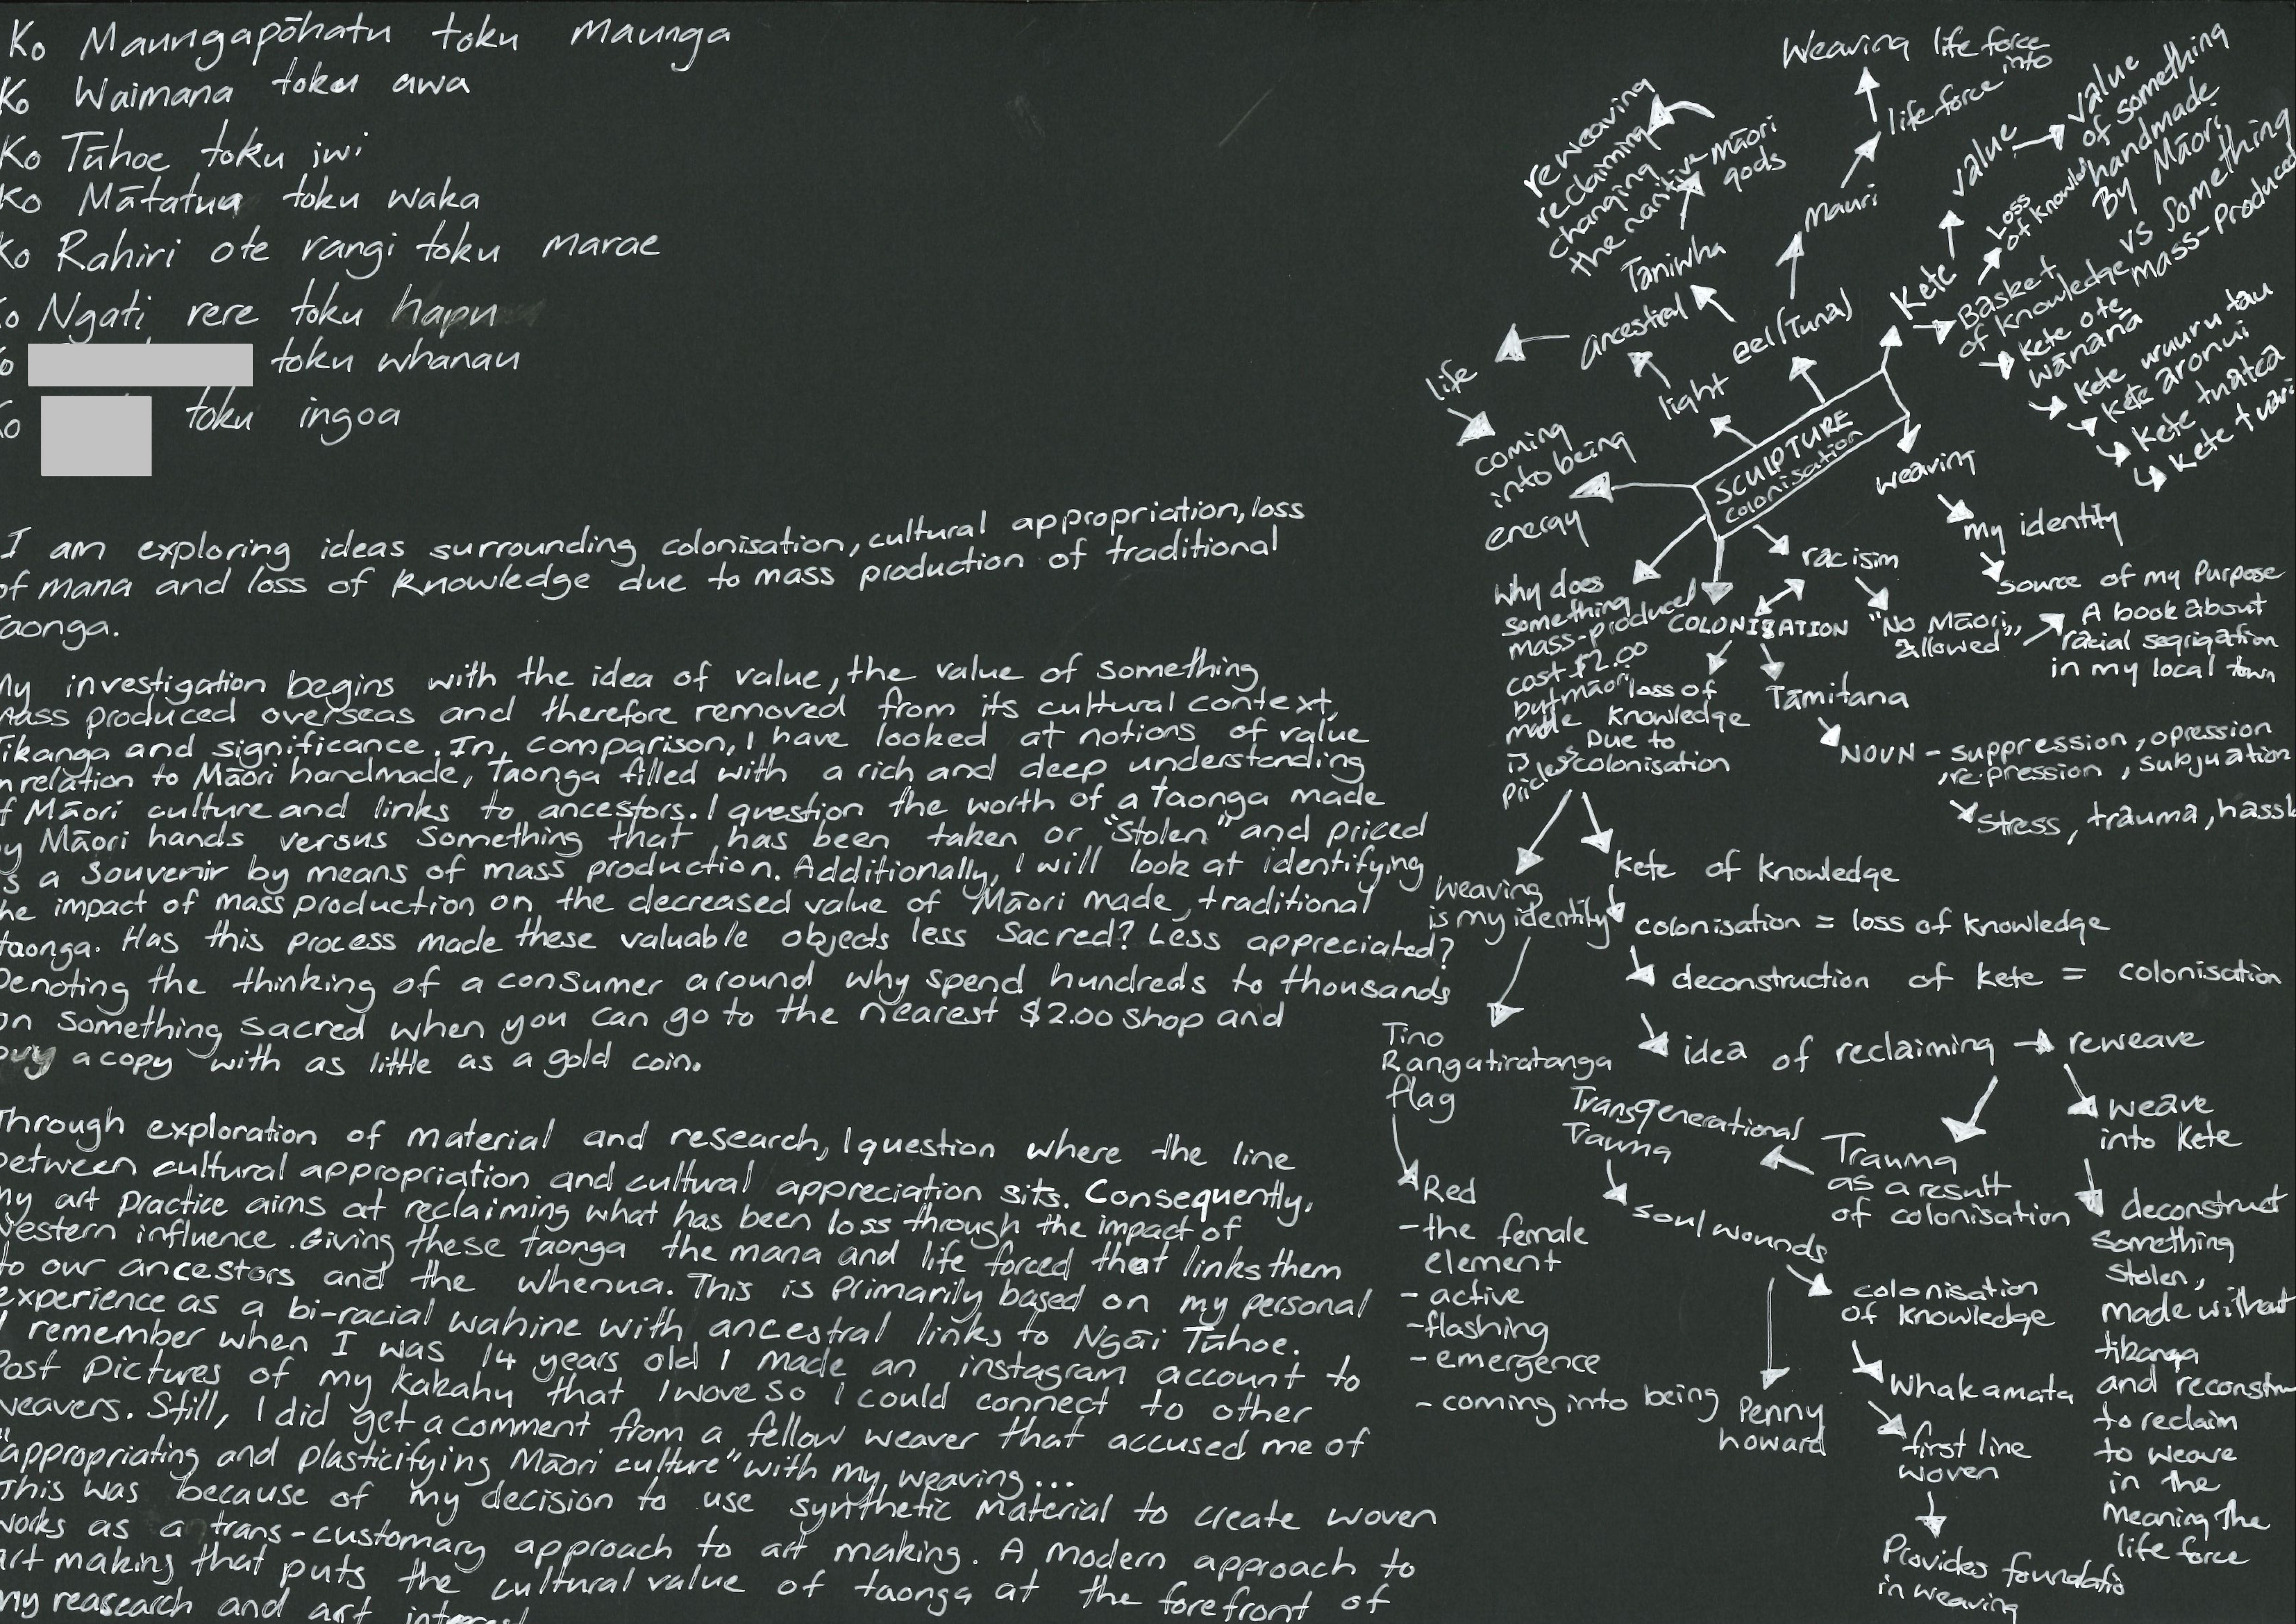 Ko Maungapōhatu toku maunga
Ko Waimana toku awa
Ko Tūhoe toku iwi
Ko Mātatua toku waka
Ko Rahiri ote rangi toku marae
Ko Ngati rere toku hapu
toku whanau
toku ingoa
I am exploring ideas surrounding colonisation, cultural appropriation, loss
of mana and loss of knowledge due to mass production of traditional
Taonga.
My investigation begins with the idea of value, the value of something
mass produced overseas and therefore removed from its cultural context,
Tikanga and significance. In comparison, I have looked at notions of value
in relation to Māori handmade, taonga filled with a rich and deep understanding
of Māori culture and links to ancestors. I question the worth of a taonga made
by Māori hands versus something that has been taken or "stolen" and priced
as a souvenir by means of mass production. Additionally, I will look at identifying
the impact of mass production on the decreased value of Māori made, traditional
taonga. Has this process made these valuable objects less sacred? Less appreciated?
Denoting the thinking of a consumer around why spend hundreds to thousands
on something sacred when you can go to the nearest $2.00 shop and
buy a copy with as little as a gold coin.
Through exploration of material and research, I question where the line
between cultural appropriation and cultural appreciation sits. Consequently,
my art practice aims at reclaiming what has been loss through the impact of
Western influence. Giving these taonga the mana and life forced that links them
to our ancestors and the whenua. This is primarily based on my personal
experience as a bi-racial wahine with ancestral links to Ngāi Tūhoe.
I remember when I was 14 years old I made an instagram account to
Post pictures of my kakahu that I wove so I could connect to other
weavers. Still, I did get a comment from a fellow weaver that accused me of
"appropriating and plasticifying Māori culture" with my weaving...
This was because of my decision to use synthetic material to create woven
works as a trans-customary approach to art making. A modern approach to
art making that puts the cultural value of taonga at the forefront of
my reasearch and art interest
SCULPTURE
colonisation
light
ancestral
life
coming
into being
energy
Taniwha
Māori
gods
reweaving
reclaiming
changing
the naritive
eel (Tuna)
Mauri
life force
Weaving life force
into
Kete
value
value
of something
handmade
By Māori
vs something
mass-produced
Loss
of knowledge
Basket
of knowledge
Kete ote
wānana
Kete wuuru tau
Kete aronui
Kete tuatea
Kete t uari
weaving
my identity
source of my Purpose
racism
"No Māori,,
allowed
A book about
racial segrigation
in my local town
COLONISATION
Tāmitana
NOUN - suppression, opression
, repression, subjuation
stress, trauma, hassl
loss of
knowledge
Due to
colonisation
why does
something
mass-produced
cost $2.00
but māori
made
is
Weaving
is my identity
Tino
Rangatiratanga
flag
Red
- the female
element
- active
- flashing
- emergence
- coming into being
Kete of knowledge
colonisation = loss of knowledge
deconstruction of kete = colonisation
idea of reclaiming
reweave
weave
into kete
deconstruct
something
stolen,
made without
tikanga
and reconstru
to reclaim
to weave
in the
meaning the
life force
Trauma
as a result
of colonisation
Transgenerational
Trauma
soul wounds
Penny
howard
colonisation
of knowledge
Whakamata
first line
woven
Provides foundatio
in weaving